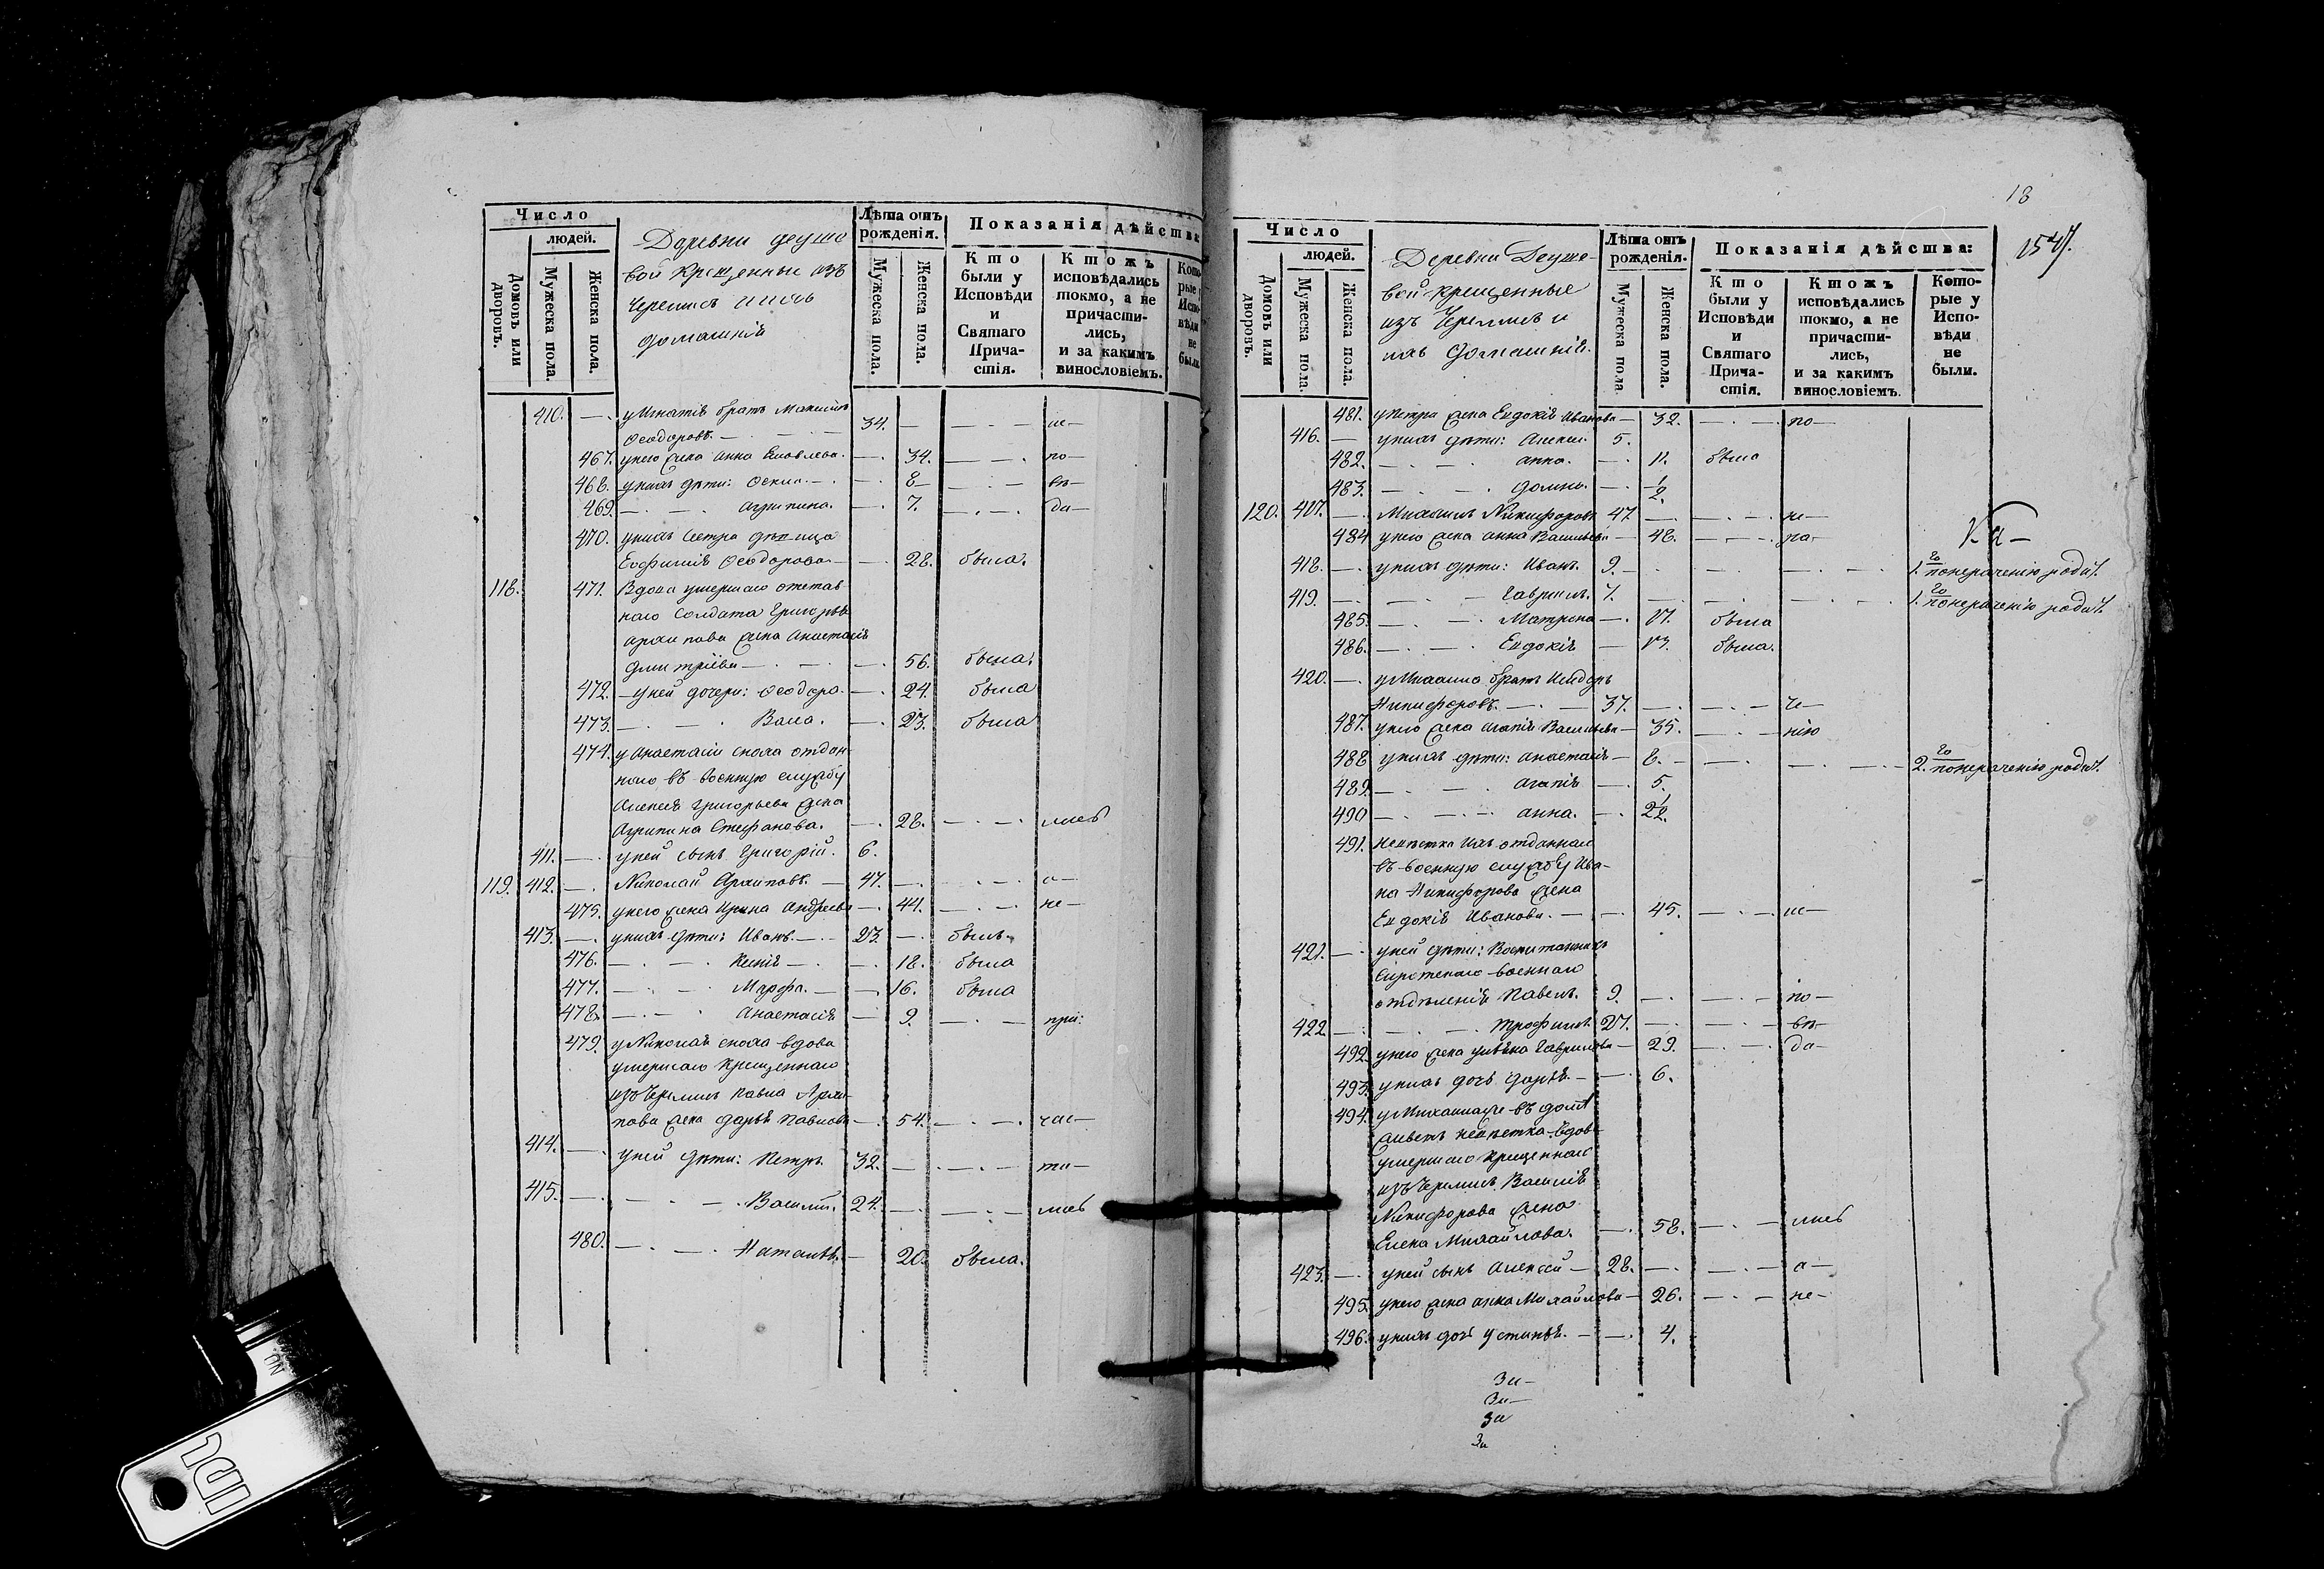 Число
людей.
Домовъ или дворовъ.
Мужеска пола.
Женска пола.
Деревни
вой крещенныи изъ
Черемисъ ихъ
домашнія
Лѣта отъ рожденія.
Мужеска пола.
Женска пола.
Показанія дѣйства
Кто были у Исповѣди и Святаго Прича-стія.
Ктожъ исповѣдались токмо, а не причасти-лись, и за какимъ винословіемъ.
410. — у Игнатія братъ Максимъ
Ѳеодоровъ 34. не—
467. у него жена Анна Яковлева. 34. по—
468. у нихъ дѣти: 8 вѣ—
469. Агрипина. 7. да—
470. у нихъ сестра дѣвица
Евфимія Ѳеодорова 28. была.
118. 471. Вдова умершаго отстав
наго солдата Григорья
Архипова жена Анастасія
Дмитріева 56. была.
472. у ней дочери: Ѳеодора 24. была
473. Васса. 23. была
474. у Анастасіи сноха отдан
наго въ военную службу
Алексея Григорьева жена
Агрипина Стефанова. 28. лись
411. у ней сынъ Григорій. 6.
119. 412. Николай Архиповъ. 47. а—
475. у него жена Ирина Андреева 44. не—
413. у нихъ дѣти: Иванъ. 23. былъ.
476. Ксенія 18. была
477. Марфа. 16. была
478. Анастасія 9. при:
479. у Николая сноха вдова
умершаго крещеннаго
изъ Черемисъ Павла Архи
пова жена Дарья Павлова 54. час—
414. у ней дѣти: Петръ. 32. ти—
415. Василій. 24. лись
480. Наталья. 20. была.
18
1547.
Число
людей.
Домовъ или дворовъ.
Мужеска пола.
Женска пола.
Деревни
вой крещенные
изъ Черемисъ и
ихъ домашнія.
Лѣта отъ рожденія.
Мужеска пола
Женска пола.
Показанія дѣйства:
Кто были у Исповѣди и Святаго Прича-стія.
Ктожъ исповѣдались токмо, а не причасти-лись, и за какимъ винословіемъ.
Кото-рые у Испо-вѣди не были.
481. у Петра жена Евдокія Иванова 32. по—
416. у нихъ дѣти: 5.
482. Анна. 11. была
483. Домна. 1/2.
120. 417. Михаилъ Никифоровъ 47. не—
484. у него жена Анна Васильева 48. по—
418. у нихъ дѣти: Иванъ. 9. 1. по нераченію родит.
419. Гаврилъ. 7. 1. по нераченію родит.
485. Матрона 17. была
486. Евдокія 13. была.
420. у Михаила братъ
Никифоровъ. 37. че—
487. у него жена Агапія Васильева 35. нію
488. у нихъ дѣти: Анастасія 8. 2. по нераченію родит.
489. Агапія 5.
490. Анна. 2 1/2.
491. Невѣстка ихъ отданнаго
въ военную службу Ива-
на Никифорова жена
Евдокія Иванова. 45. ис—
421. у ней дѣти: Воспитанникъ
Сиротскаго военнаго
отдѣленія Павелъ. 9. по—
422. Трофимъ. 27. вѣ—
492. у него жена Гаврилова 29. да—
493. у нихъ дочь Дарья. 6.
494. у Михаила же въ домѣ
живетъ невѣстка вдова
умершаго крещеннаго
изъ Черемисъ Василія
Никифорова жена
Елена Михайлова. 58. лись
423. у ней сынъ Алексей 28. а—
495. у него жена Анна Михайлова 26. не—
496. у нихъ дочь Устинья. 4.